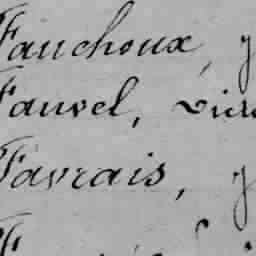 Fauchoux, y
Fauvel, vic
Favrais, y